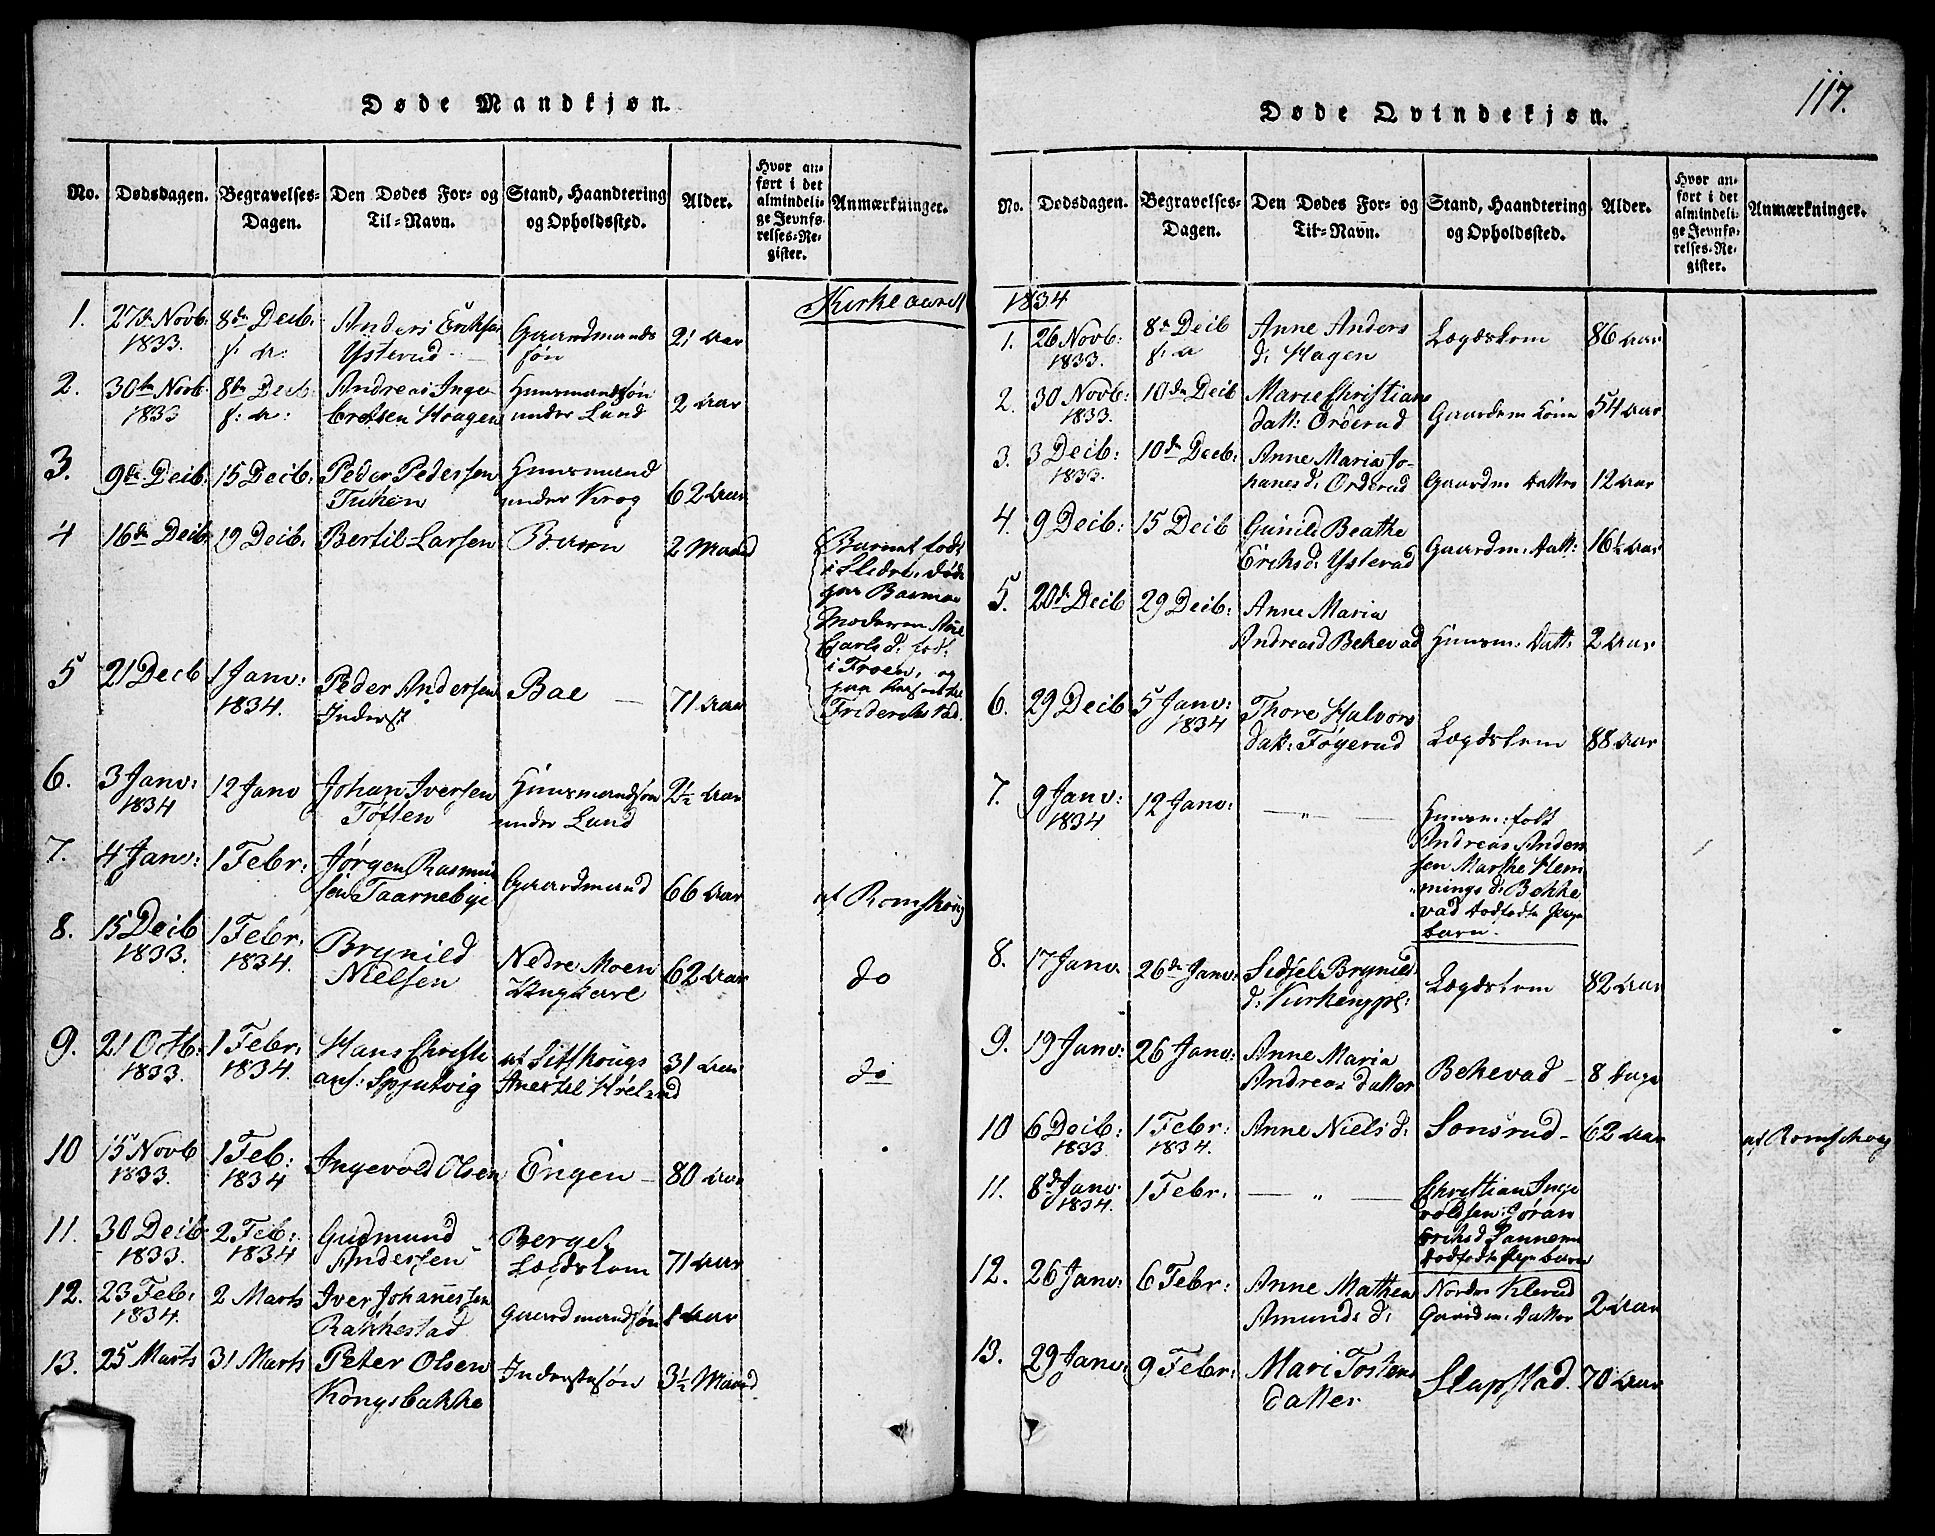 Døde Mandkjøn.
No.
Dødsdagen.
Begravelses-
Dagen.
Den Dødes For- og
Til-Navn.
Stand, Haandtering
og Opholdssted.
Alder.
Hvor an-
ført i det
almindeli-
ge Jevnfø-
relses-Re-
gister.
Anmærkninger.
Kirkeaaret
1. 27de Novb: 8de Decb: Anders Eriksen Gaardmands 21 Aar
1833. f: a: Ysterud søn
2. 30te Novb. 8de Decb: Andreas Inge- Huusmandsøn 2 Aar
1833 f: a: bretsen Haagen under Lund
3. 9de Decb: 15 Decb: Peder Pedersen Huusmand 62 Aar
under Krog
4 16de Decb: 19 Decb: Bertil Larsen Barn 2 Maand
Barnet født
i
paa
Moderen
Carls d: født
i Troen, og
paa
Friderikstad.
5 21 Decb 1 Janv: Peder Andersen Bae 71 Aar
1834. Inderst
6. 3 Janv: 12 Janv Johan Iversen Huusmandsøn 2½ Aar
1834 Toften under Lund
7. 4 Janv: 1 Febr: Jørgen Rasmus
sen Taarnebye Gaardmand 66 Aar af Romskoug
8. 15 Decb 1 Febr: Brynild Nedre Moen 62 Aar do
1833. 1834. Nielsen Ungkarl
9. 21 Octb: 1 Febr: Hans Christi af Setskougs 31 Aar do
1833. 1834. ans: Spjutvig Anex til Høland
10 15 Novb 1 Feb: Ingevold Olsen Engen 80 Aar
1833. 1834
11. 30 Decb 2 Feb: Gudmund Berget 71 Aar
1833. 1834 Andersen Lægdslem
12. 23 Feb: 2 Marts Iver Johannessen Gaardmandsøn 1 Aar
1834. Rakkestad
13. 25 Marts 31 Marts Peter Olsen Inderstsøn 3½ Maand
Kongsbakke
117.
Døde Qvindekjøn.
No.
Dødsdagen.
Begravelses-
Dagen.
Den Dødes For- og
Til-Navn.
Stand, Haandtering
og Opholdssted.
Alder.
Hvor an-
ført i det
almindeli-
ge Jevnfø-
relses-Re-
gister.
Anmærkninger.
1834
1. 26 Novb: 8de Decb Anne Anders Lægdslem 86 Aar
1833. f: a d: Hagen
2. 30 Novb: 10de Decb Marie Christians
1833. datt: Orderud Gaardm: Kone 54 Aar
3. 3 Decb: 10de Decb: Anne Maria Jo-
1833. hanes d: Orderud Gaardm: Datter 12 Aar
4. 9 Decb: 15 Decb Gunild Beathe
Eriks d: Ysterud Gaardm: Datt: 16½ Aar
5. 20de Decb 29 Decb: Anne Maria
Andreas d Bekevad Huusm: Datt: 2 Aar
6. 29 Decb 5 Janv: Thore Halvors
1834 datt: Føyerud Lægdslem 88 Aar
7. 9 Janv: 12 Janv: — „ —
1834.
Huusm: folk
Andreas Ander
sen Marthe Hem
mings d: Bekke
vad dødfødte Pige
barn.
8. 17 Janv. 26de Janv: Sidsel Brynild
d: Lægdslem 82 Aar
9. 19 Janv: 26 Janv: Anne Maria
Andreas datter Bekevad 8 Dage
10 6 Decb: 1 Febr: Anne Niels d: Sonsrud 62 Aar af Romschoug
1833 1834.
11. 8de Janv: 1 Febr: — „ — Christian Inge
1834. voldsen: Gøran
Eriks d
dødfødte Pige barn
12. 26 Janv: 6 Febr: Anne Mathea Nordre Klerud
Amunds d: Gaardm: Datter 2 Aar
13. 29 Janv: 9 Febr: Mari Tostens
Datter Slupstad. 70 Aar